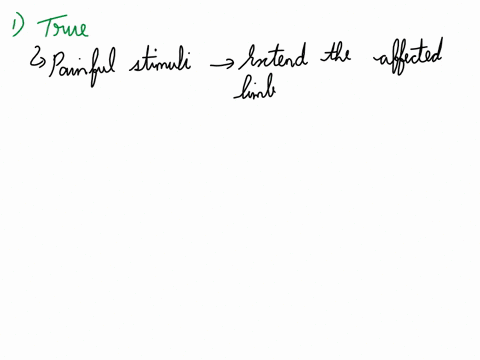 1) True
↳ Painful stimuli → Extend the affected
limb